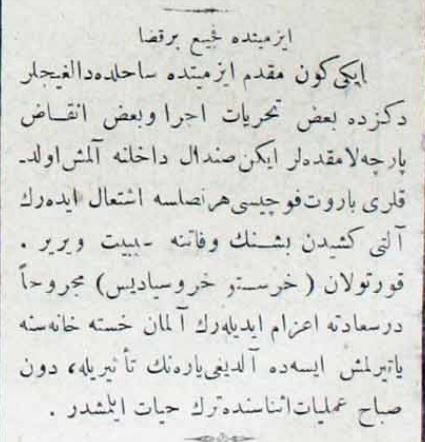 ازميتده فجيع برقضا
ايكى كون مقدم ازميتده ساحلده دالغيجلر
دكزده بعض تحريات اجرا وبعض انقـاض
پارچه لامقده لر ايكن صندال داخلنه آلمش اولد-
قلرى باروت فوچيسى هرنصلسه اشتعال ايده رك
آلتى كشيدن بشـنك وفاتنه سببيت ويرير .
قورتولان ( خرستو خروسياديس ) مجروحاً
درسعادته اعزام ايديله رك آلمان خسته خانه سنه
ياتيرلمش ايسه ده آلديغى ياره نك تأثيريله، دون
صباح عمليات اثناسنده ترك حيات ايلمشدر .